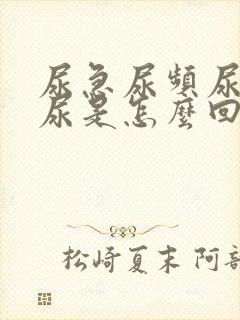 尿急尿頻尿
尿是怎麼回
松崎夏末 阿部